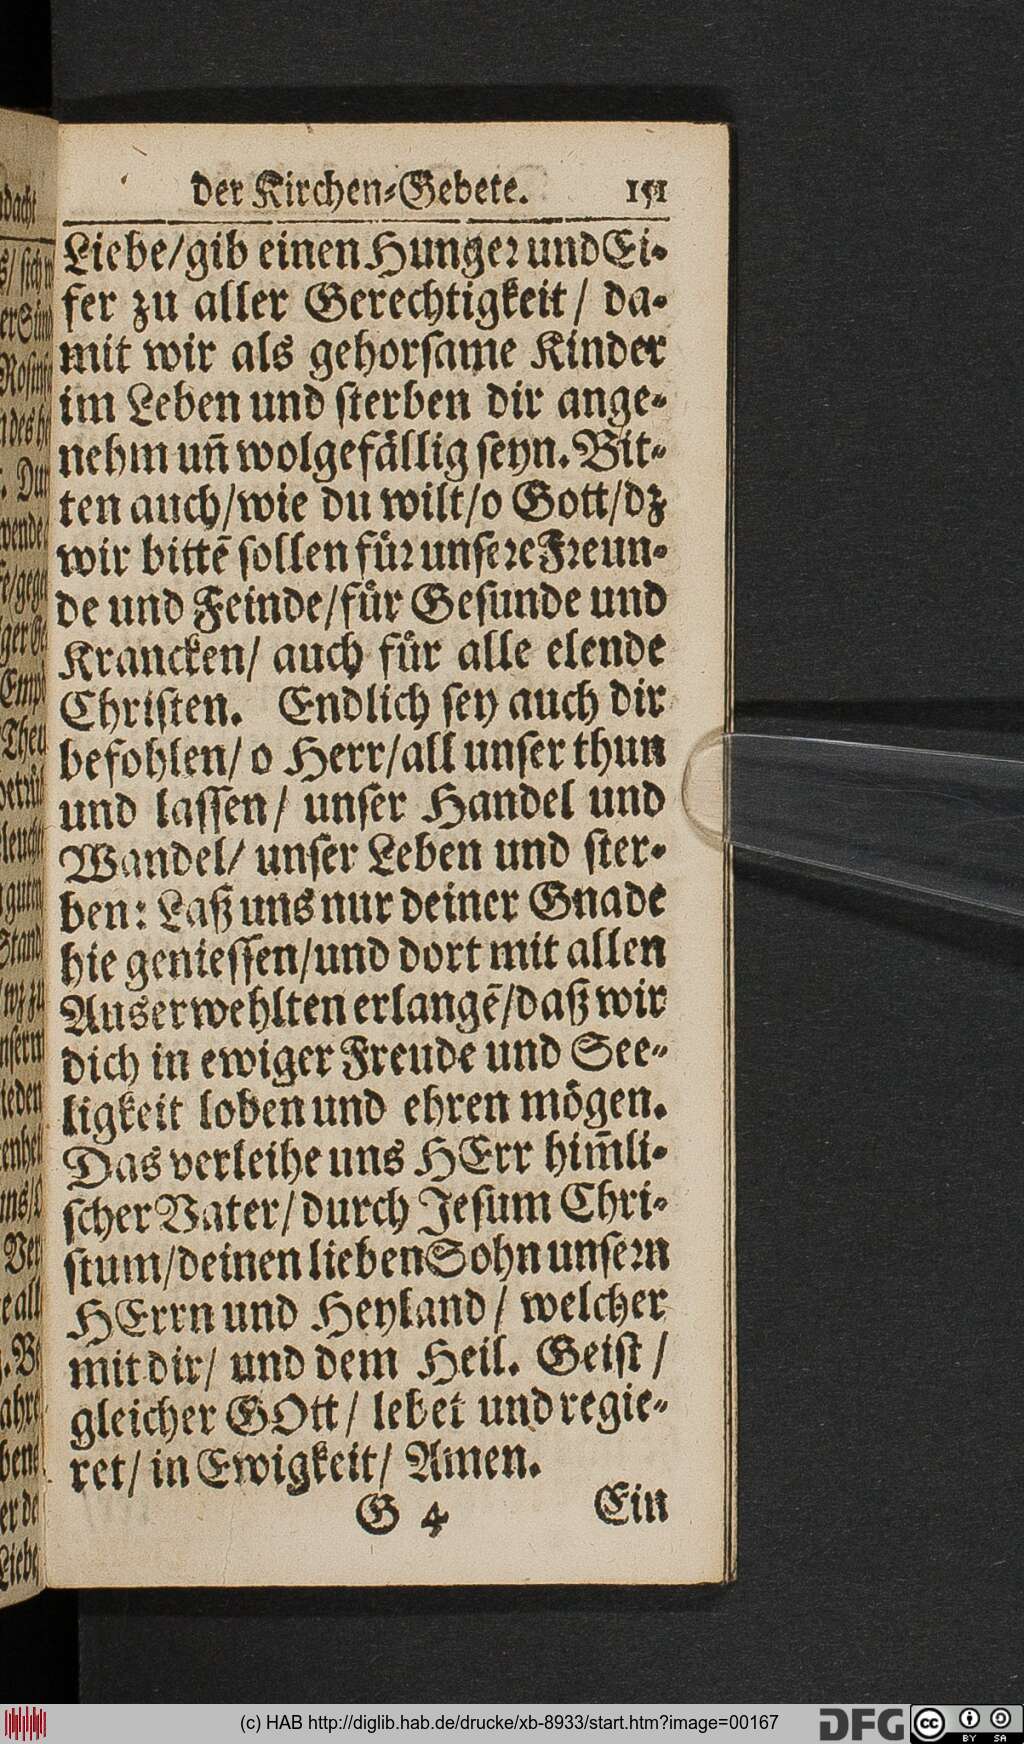 der Kirchen-Gebete. 151
Liebe/gib einen Hunger und Ei-
fer zu aller Gerechtigkeit / da-
mit wir als gehorsame Kinder
im Leben und sterben dir ange-
nehm un̄ wolgefällig seyn. Bit-
ten auch/wie du wilt/o Gott/dz
wir bittē sollen für unsere Freun-
de und Feinde/für Gesunde und
Krancken/ auch für alle elende
Christen. Endlich sey auch dir
befohlen/ o Herr/all unser thun
und lassen/ unser Handel und
Wandel/ unser Leben und ster-
ben: Laß uns nur deiner Gnade
hie geniessen/und dort mit allen
Auserwehlten erlangē/daß wir
dich in ewiger Freude und See-
ligkeit loben und ehren mögen.
Das verleihe uns HErr him̄li-
scher Vater/durch Jesum Chri-
stum/deinen lieben Sohn unsern
HErrn und Heyland / welcher
mit dir/ und dem Heil. Geist /
gleicher GOtt/ lebet und regie-
ret/ in Ewigkeit/ Amen.
G 4 Ein
(c) HAB http://diglib.hab.de/drucke/xb-8933/start.htm?image=00167
DFG cc BY SA